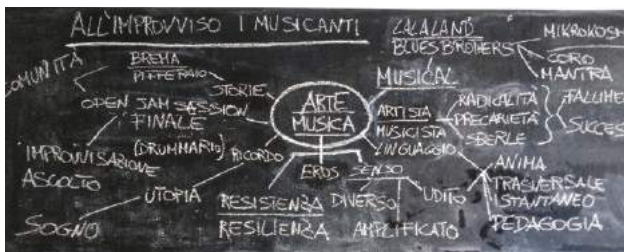 ALL'IMPROVVISO I MUSICANTI
LALALAND
BLUES BROTHERS
MIKROKOSM
CORO
MANTRA
COMUNITÀ
BREMA
PIFFERAIO
STORIE
MUSICAL
OPEN JAM SESSION
FINALE
ARTE
MUSICA
ARTISTA
MUSICISTA
LINGUAGGIO
RADICALITÀ
PRECARIETÀ
SBERLE
FALLIME
SUCCES
IMPROVVISAZIONE
ASCOLTO
(DRUMMARIO)
RICORDO
EROS
SENSO
ANIMA
TRASVERSALE
ISTANTANEO
PEDAGOGIA
UTOPIA
SOGNO
RESISTENZA
RESILIENZA
DIVERSO
UDITO
AMPLIFICATO